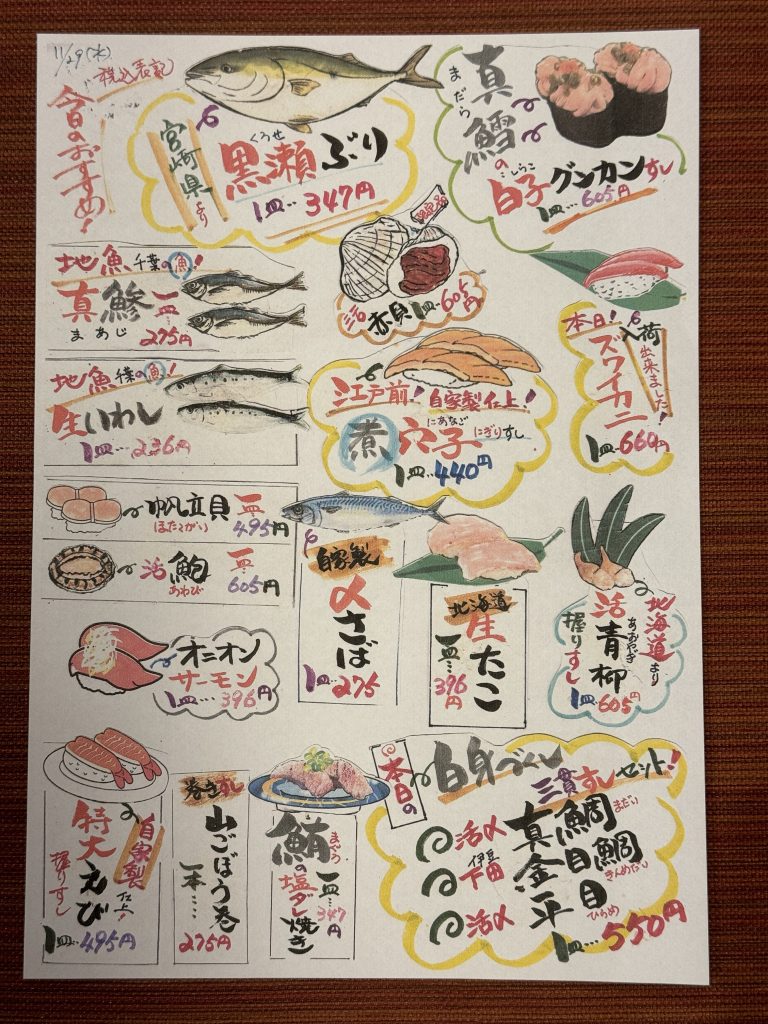 11/29(水)
税込表記
今日のおすすめ!
宮崎県より
くろせ
黒瀬ぶり
1皿…347円
まだら
真鱈の
しらこ
白子グンカンすし
1皿…605円
地魚千葉の魚!
真鯵一皿
まあじ 275円
活赤貝1皿…605円
本日!入荷出来ました!
ズワイカニ
1皿…660円
地魚千葉の魚!
生いわし
1皿…236円
江戸前!自家製仕上!
にあなご
煮穴子にぎりすし
1皿…440円
帆立貝一皿
ほたてがい 495円
活鮑一皿
あわび 605円
自家製
〆さば
1皿…275
北海道
生たこ
一皿…396円
北海道より
活青柳
あおやぎ
握りすし
1皿…605円
オニオン
サーモン
1皿…396円
自家製仕上!
特大えび
握りすし
1皿…495円
巻きすし
山ごぼう巻
一本……
275円
まぐろ
鮪の塩ダレ焼き
一皿…347円
本日の
白身づくし
三貫すしセット!
活〆真鯛
まだい
伊豆
下田金目鯛
きんめだい
活〆平目
ひらめ
1皿…550円